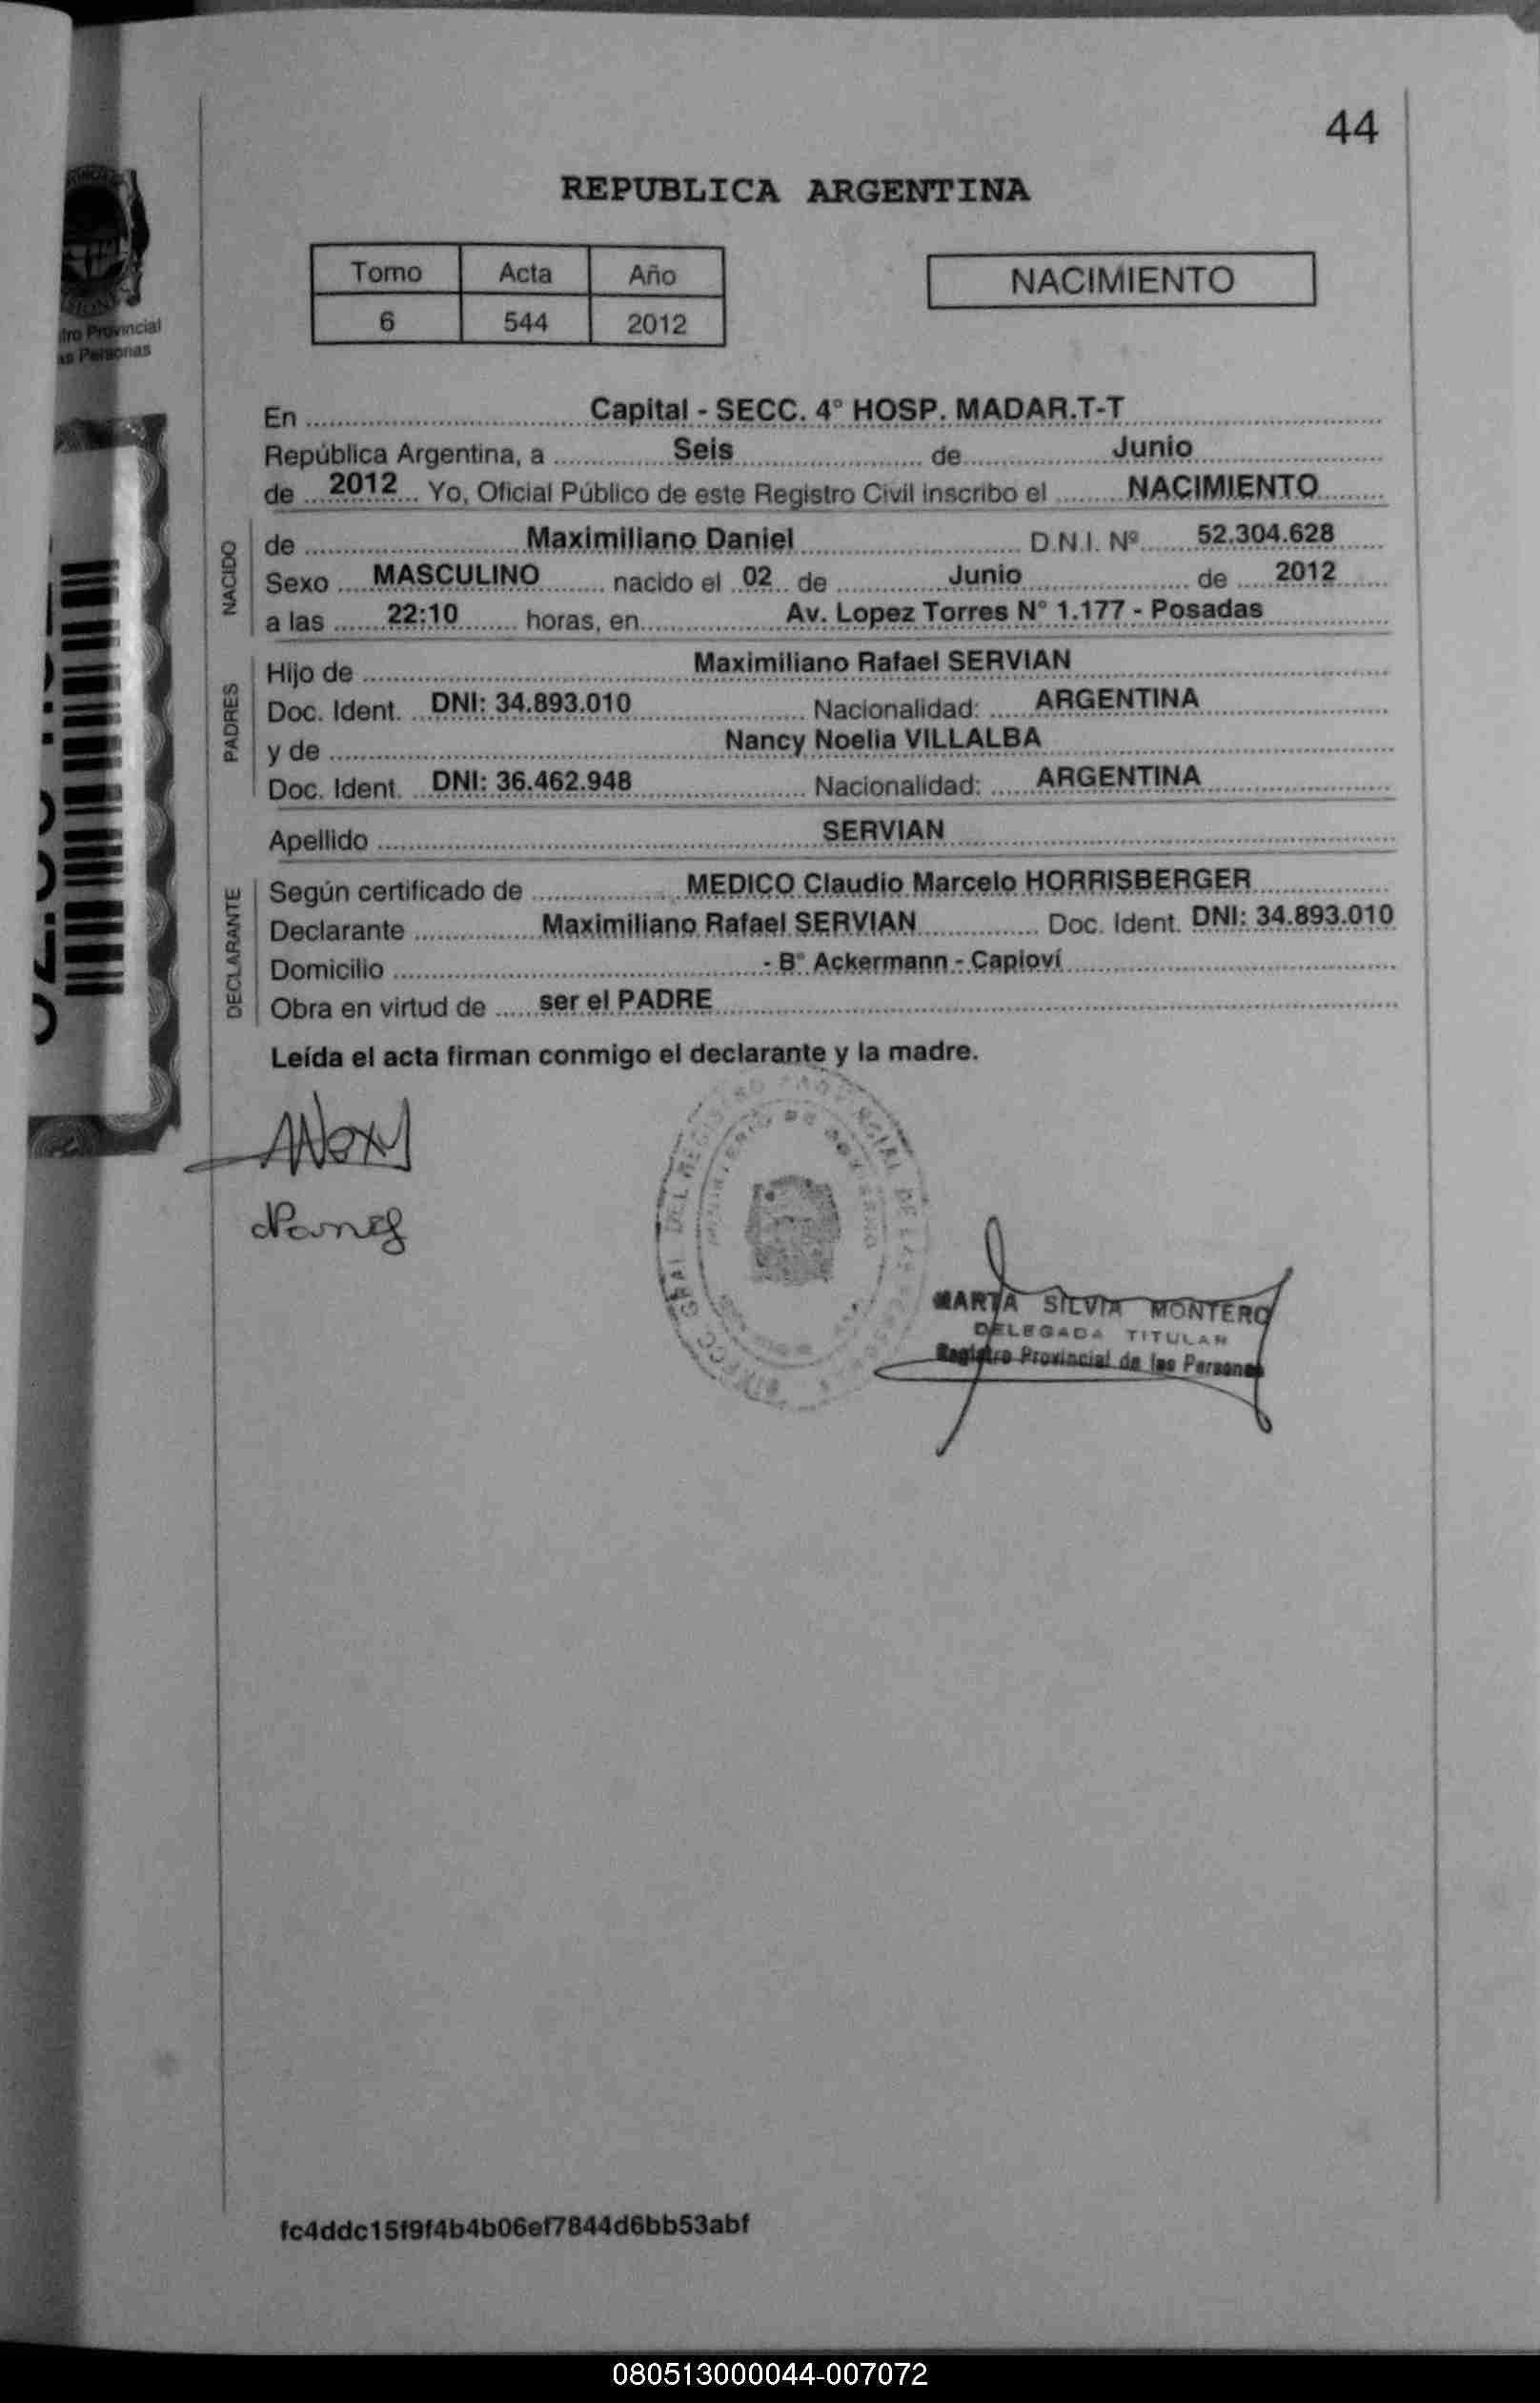 44
REPUBLICA ARGENTINA
Tomo Acta Año
6 544 2012
NACIMIENTO
Provincial
Personas
En Capital - SECC. 4° HOSP. MADAR.T-T
República Argentina, a Seis de Junio
de 2012 Yo, Oficial Público de este Registro Civil inscribo el NACIMIENTO
NACIDO
de Maximiliano Daniel D.N.I. Nº 52.304.628
Sexo MASCULINO nacido el 02 de Junio de 2012
a las 22:10 horas, en Av. Lopez Torres N° 1.177 - Posadas
PADRES
Hijo de Maximiliano Rafael SERVIAN
Doc. Ident. DNI: 34.893.010 Nacionalidad: ARGENTINA
y de Nancy Noelia VILLALBA
Doc. Ident. DNI: 36.462.948 Nacionalidad: ARGENTINA
Apellido SERVIAN
DECLARANTE
Según certificado de MEDICO Claudio Marcelo HORRISBERGER
Declarante Maximiliano Rafael SERVIAN Doc. Ident. DNI: 34.893.010
Domicilio - B° Ackermann - Capioví
Obra en virtud de ser el PADRE
Leída el acta firman conmigo el declarante y la madre.
Nancy
MARTA SILVIA MONTERO
DELEGADA TITULAR
Registro Provincial de las Personas
fc4ddc15f9f4b4b06ef7844d6bb53abf
080513000044-007072